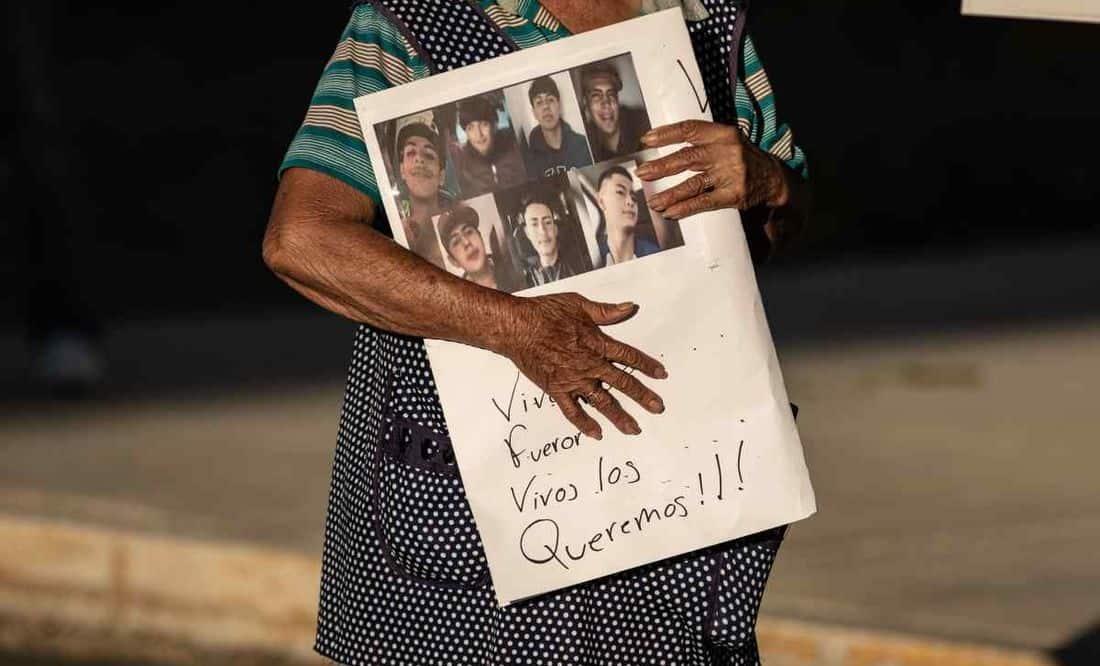 Vivos
Fueron
Vivos los
Queremos!!!